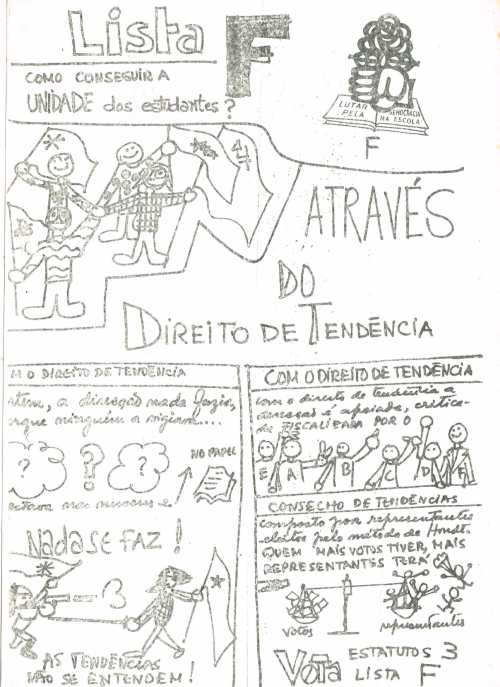 Lista F
COMO CONSEGUIR A
UNIDADE dos estudantes?
LUTAR PELA DEMOCRACIA NA ESCOLA
F
ATRAVÉS
DO
DIREITO DE TENDÊNCIA
M O DIREITO DE TENDÊNCIA
a direcção nada fazia,
rque ninguém a vigiava....
? ? ?
NO PAPEL
e
Nada SE FAZ!
AS TENDÊNCIAS
NÃO SE ENTENDEM!
COM O DIREITO DE TENDÊNCIA
com o direito de tendência a
direcção é apoiada, critica-
da FISCALIZADA POR O
E A B C D F
CONSECHO DE TENDÊNCIAS
composto por representantes
eleitos pelo método de Hondt.
QUEM MAIS VOTOS TIVER, MAIS
REPRESENTANTES TERÁ
votos
representantes
VOTA ESTATUTOS 3
LISTA F